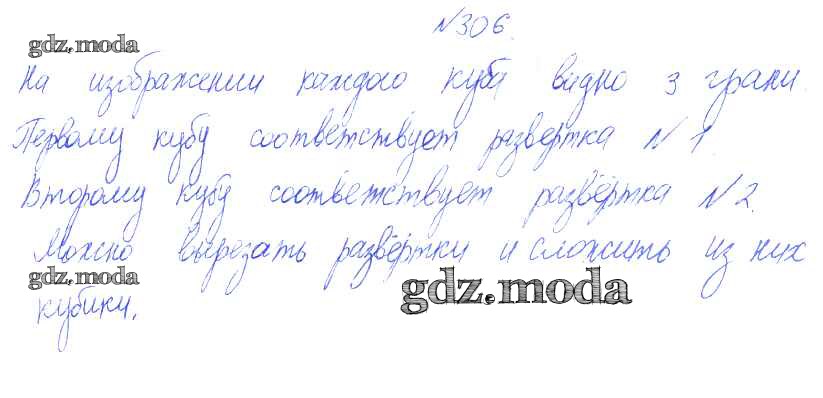 №306.
gdz.moda
На изображении каждого куба видно 3 грани.
Первому кубу соответствует развертка №1
Второму кубу соответствует развёртка №2.
Можно вырезать развёртки и сложить из них
gdz.moda
gdz.moda
кубики.